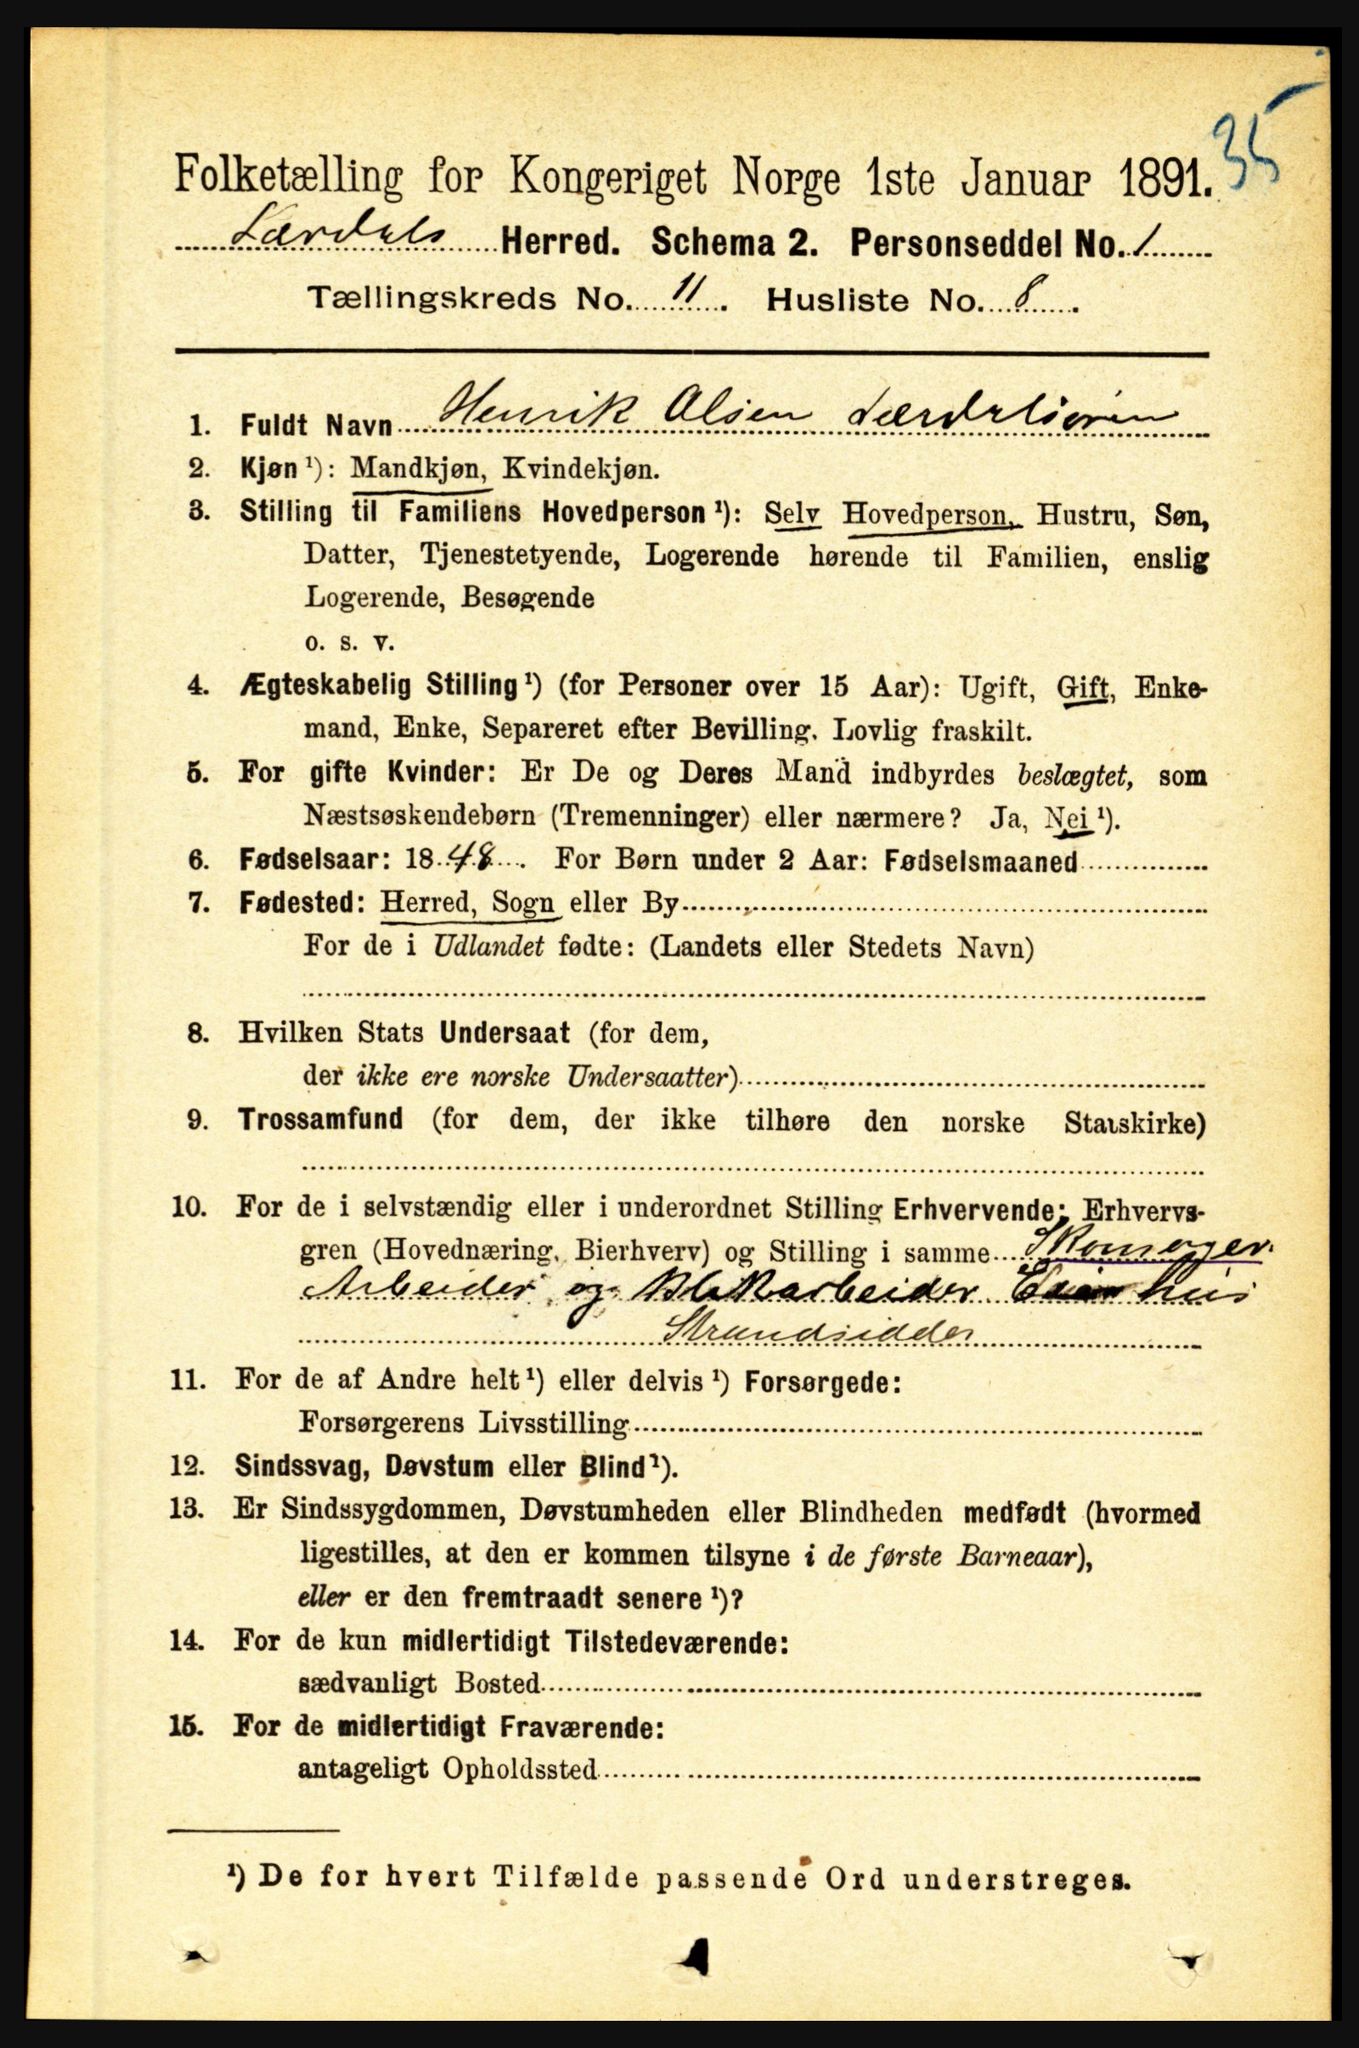 35
Folketælling for Kongeriget Norge 1ste Januar 1891.
Lærdals Herred. Schema 2. Personseddel No. 1
Tællingskreds No. 11. Husliste No. 8.
1. Fuldt Navn Henrik Olsen Lærdalsøren
2. Kjøn ¹): Mandkjøn, Kvindekjøn.
3. Stilling til Familiens Hovedperson ¹): Selv Hovedperson, Hustru, Søn,
Datter, Tjenestetyende, Logerende hørende til Familien, enslig
Logerende, Besøgende
o. s. v.
4. Ægteskabelig Stilling ¹) (for Personer over 15 Aar): Ugift, Gift, Enke-
mand, Enke, Separeret efter Bevilling. Lovlig fraskilt.
5. For gifte Kvinder: Er De og Deres Mand indbyrdes beslægtet, som
Næstsøskendebørn (Tremenninger) eller nærmere? Ja, Nei ¹).
6. Fødselsaar: 1848. For Børn under 2 Aar: Fødselsmaaned
7. Fødested: Herred, Sogn eller By
For de i Udlandet fødte: (Landets eller Stedets Navn)
8. Hvilken Stats Undersaat (for dem,
der ikke ere norske Undersaatter)
9. Trossamfund (for dem, der ikke tilhøre den norske Statskirke)
10. For de i selvstændig eller i underordnet Stilling Erhvervende: Erhvervs-
gren (Hovednæring, Bierhverv) og Stilling i samme Skomager
Arbeider og Blikarbeider hus
Strandsidder
11. For de af Andre helt ¹) eller delvis ¹) Forsørgede:
Forsørgerens Livsstilling
12. Sindssvag, Døvstum eller Blind ¹).
13. Er Sindssygdommen, Døvstumheden eller Blindheden medfødt (hvormed
ligestilles, at den er kommen tilsyne i de første Barneaar),
eller er den fremtraadt senere ¹)?
14. For de kun midlertidigt Tilstedeværende:
sædvanligt Bosted
15. For de midlertidigt Fraværende:
antageligt Opholdssted
¹) De for hvert Tilfælde passende Ord understreges.